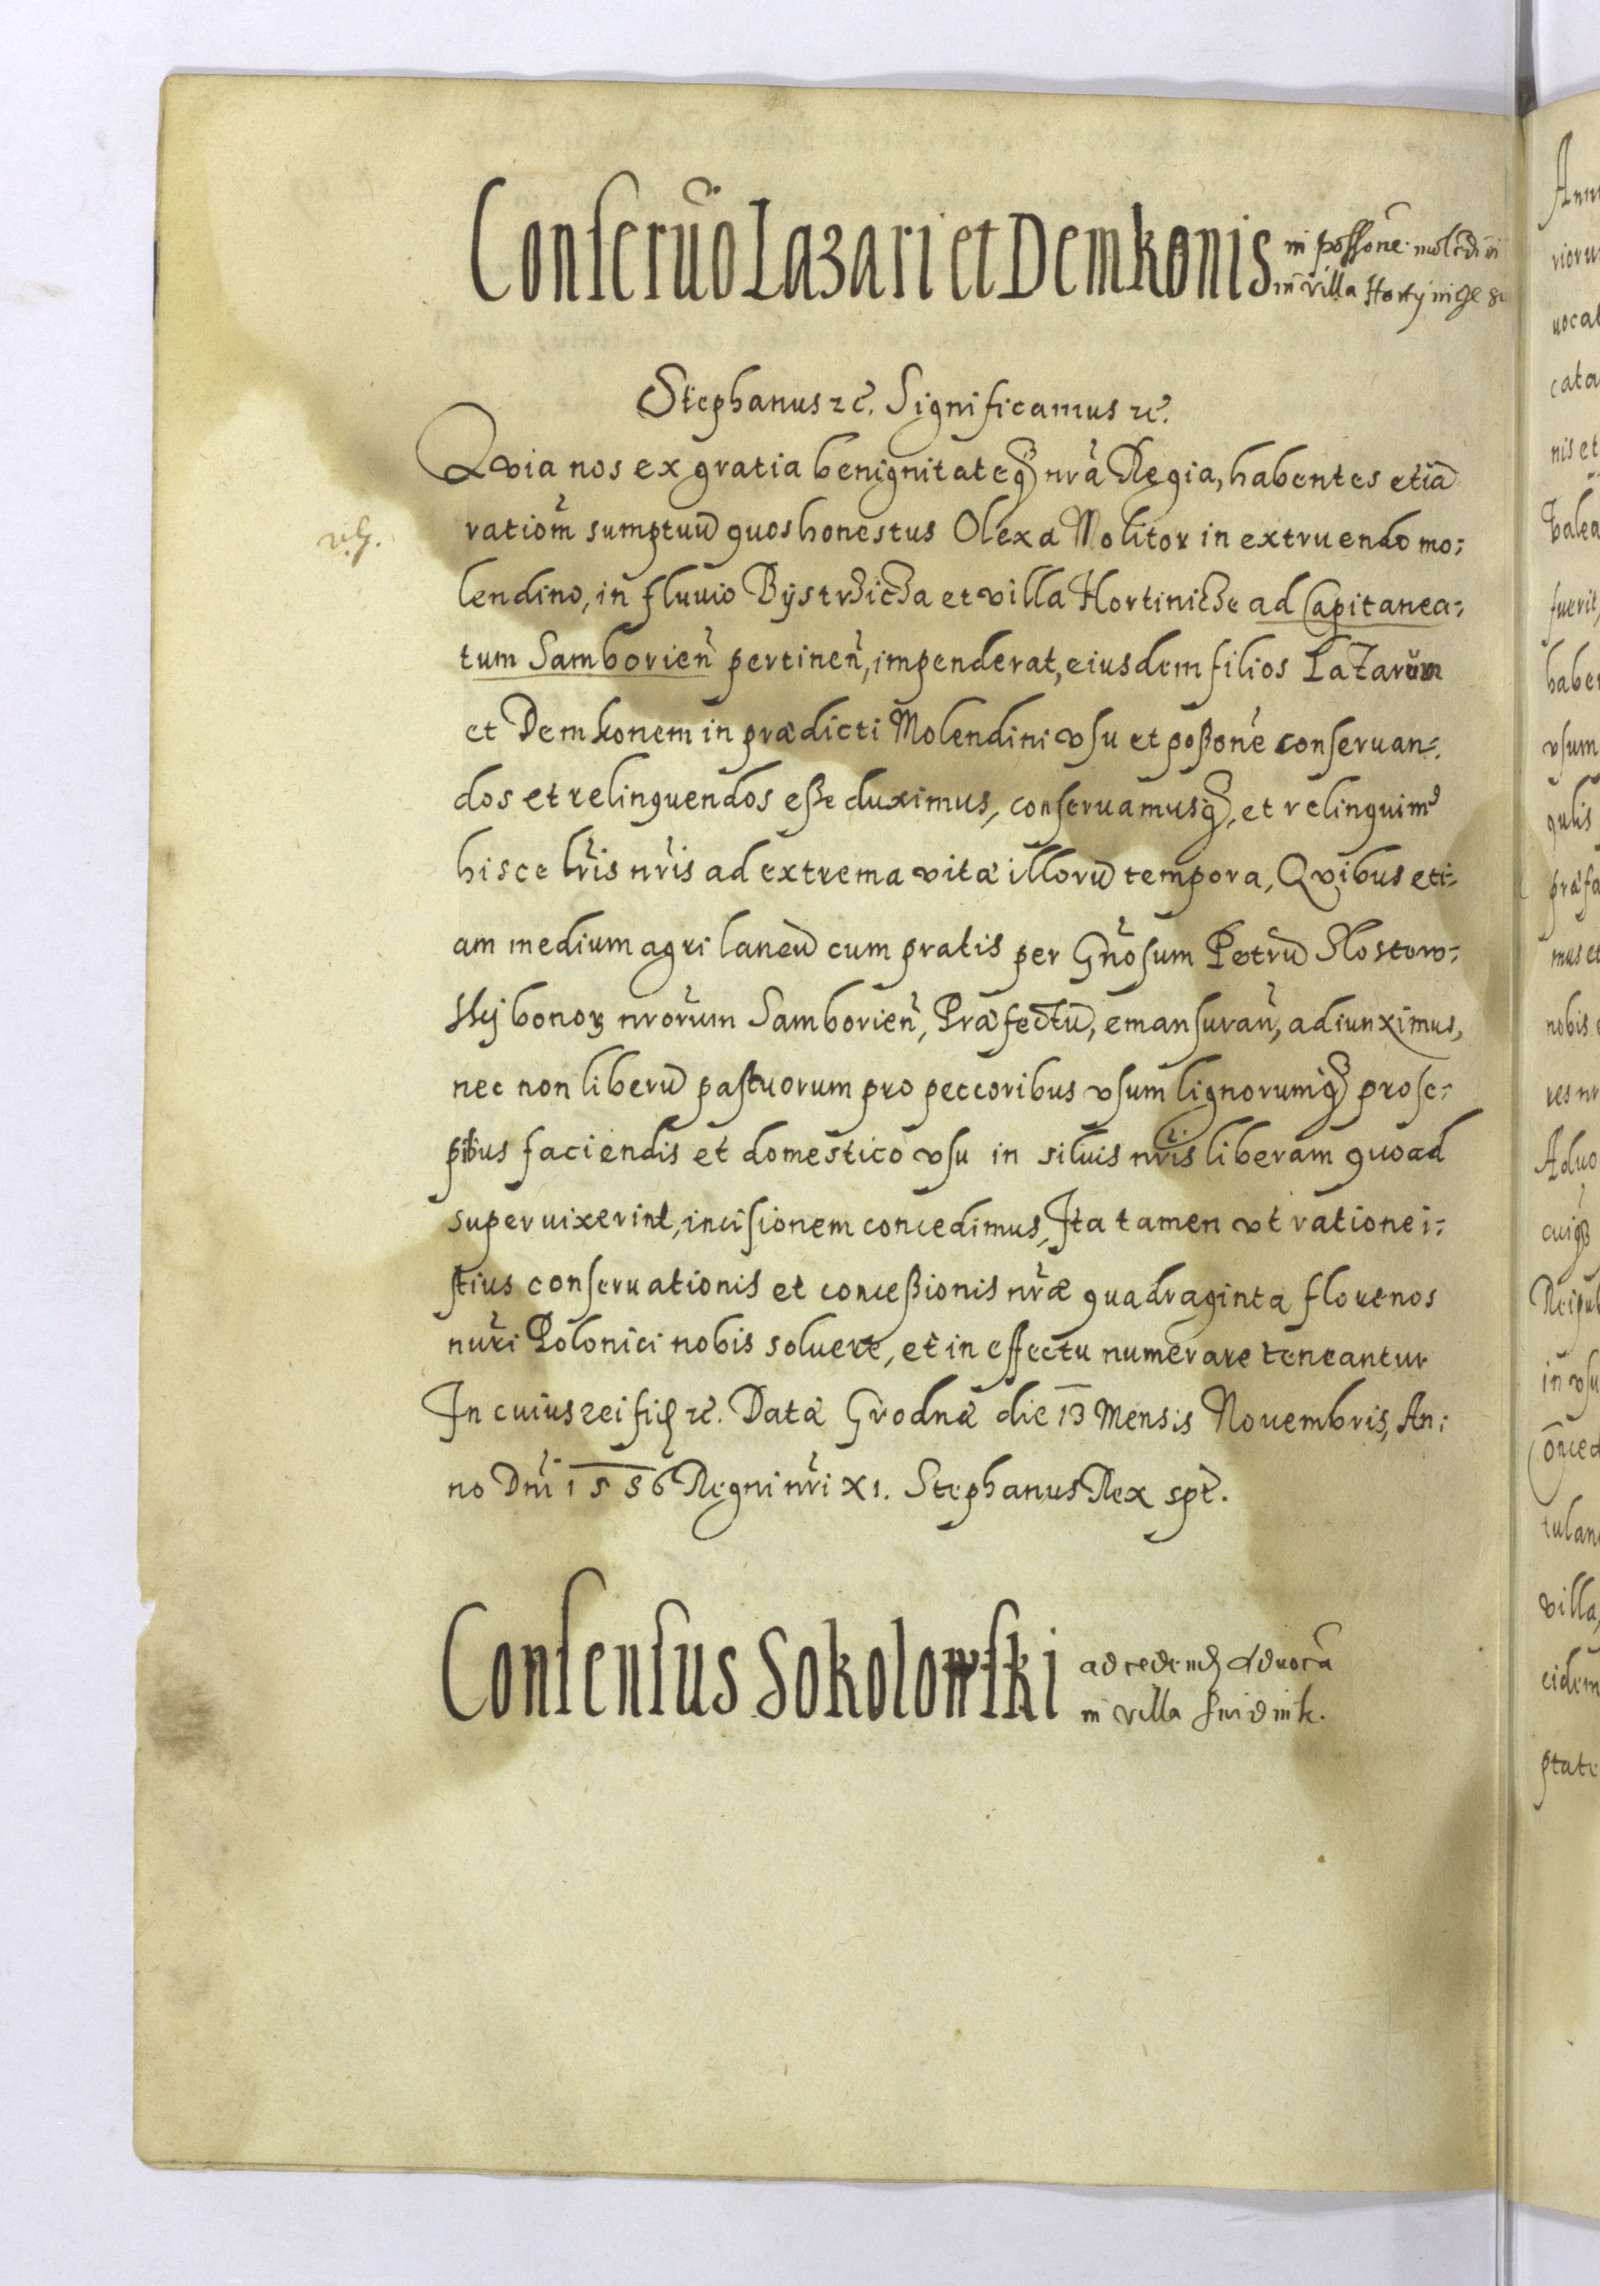 Conseruão Lazari et Demkonis in possone molēdini
in villa Hortynicze
Stephanus &c. Significamus &c.
Quia nos ex gratia benignitateq3 nrā Regia, habentes etiā
rationm sumptuū quos honestus Olexa Molitor in extruendo mo:
lendino, in fluuio Bÿstrzicza et villa Hortinicze ad Capitanea:
tum Samborien pertinen, impenderat, eiusdem filios Lazarum
et Demkonem in prædicti Molendini vsu et poßone conseruan:
dos et relinquendos eße duximus, conseruamusq3, et relinquim9
hisce lris nris ad extrema vitæ illorū tempora, Quibus eti:
am medium agri laneū cum pratis per Gnosum Petrū Slostow:
skij bonor nrorum Samborien, Præfectū, emansuran, adiunximus,
nec non liberū pastuorum pro peccoribus vsum lignorumq3 pro se:
pibus faciendis et domestico vsu in siluis nris liberam quoad
superuixerint, incisionem concedimus, Ita tamen vt ratione i:
stius conseruationis et conceßionis nræ quadraginta florenos
nuri Polonici nobis soluere, et in effectu numerare teneantur
In cuius rei fid &c. Datæ Grodnæ die 13 Mensis Nouembris, An:
no Dni 1586 Regni nri XI. Stephanus Rex spt.
Consensus Sokolowski ad cedend aduocā
in villa